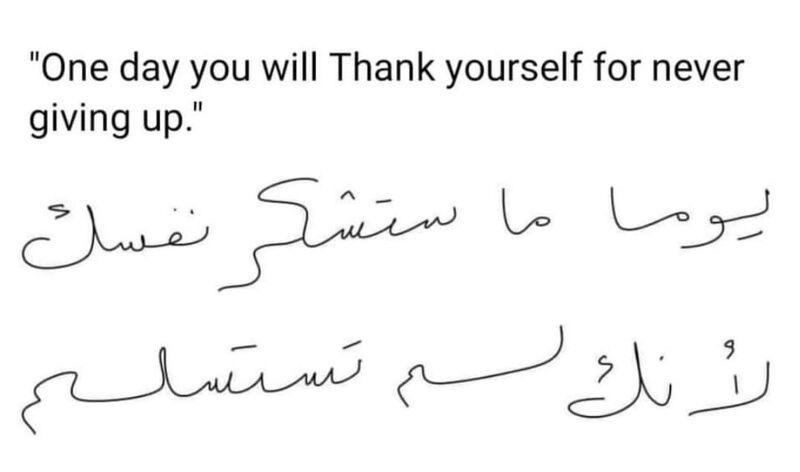 "One day you will Thank yourself for never
giving up."
يوما ما ستشكر نفسك
لأنك لم تستسلم